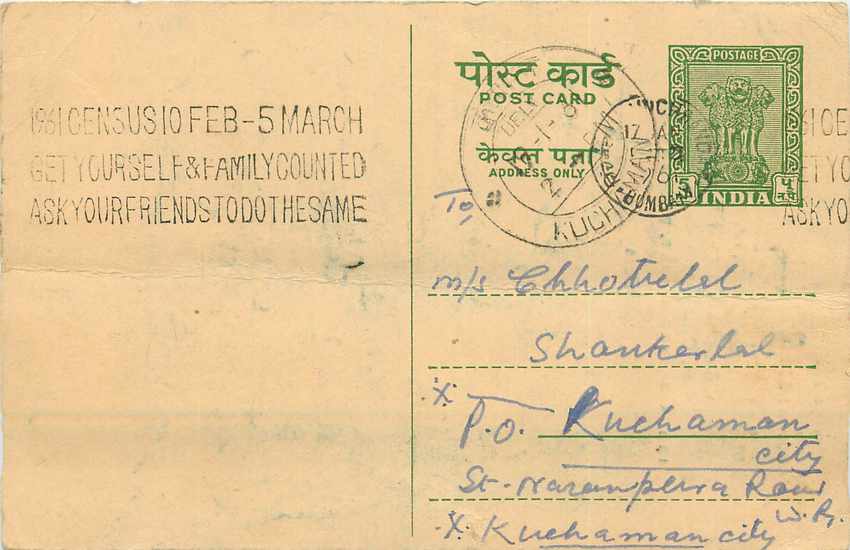 1961 CENSUS 10 FEB - 5 MARCH
GET YOURSELF & FAMILY COUNTED
ASK YOUR FRIENDS TO DO THE SAME
पोस्ट कार्ड
POST CARD
केवल पता
ADDRESS ONLY
POSTAGE
INDIA
BOMBAY
To,
m/s Chhotelal
Shankerlal
X. P.O. Kuchaman
city
St. Naranpura Road
W. Ry.
X. Kuchaman city